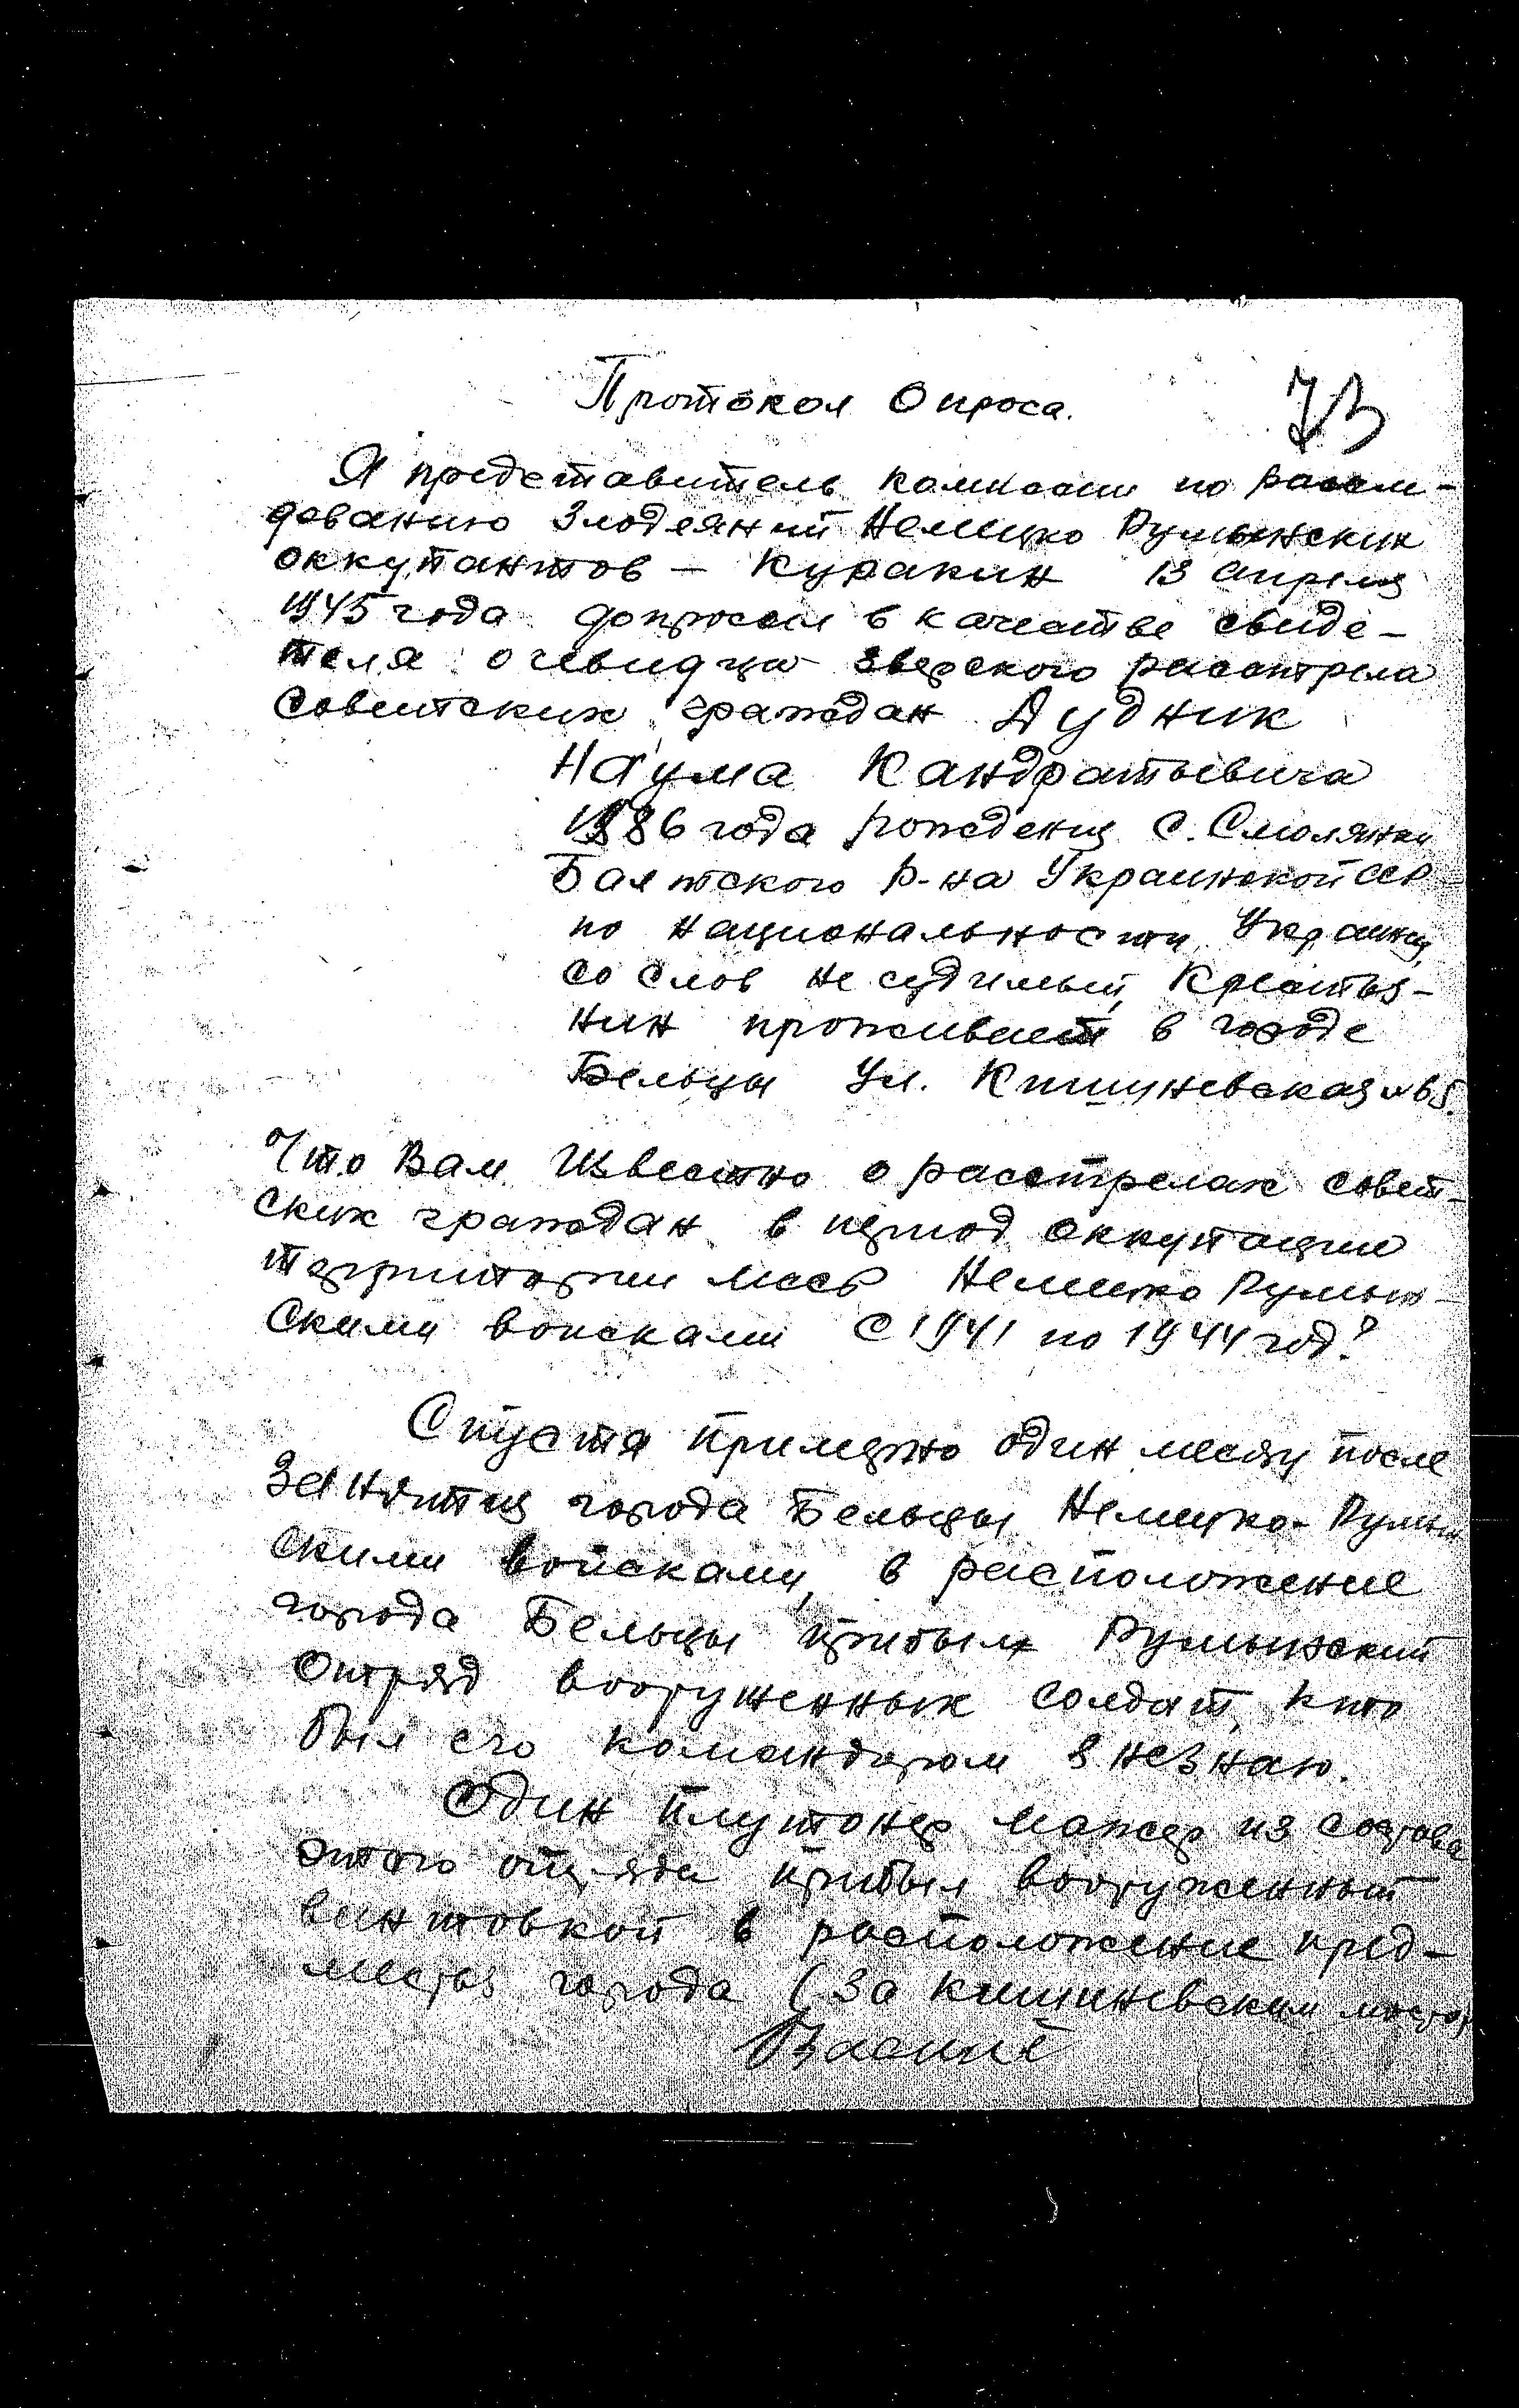 Протокол Опроса.
73
Я представитель комиссии по рассле-
дованию Злодеяний Немецко Румынских
оккупантов — Куракин 13 апреля
1945 года допросил в качестве свиде-
теля очевидца зверского расстрела
Советских граждан Дудник
Наума Кандратьевича
1886 года рождения с. Смолянка
Балтского р-на Украинской ССР
по национальности Украинец,
со слов не судимый, Крестья-
нин проживает в городе
Бельцы Ул. Кишиневская №65.
Что Вам Известно о расстрелах совет-
ских граждан в период оккупации
территории МССР Немецко Румын-
скими войсками С 1941 по 1944 год?
Спустя примерно один месяц после
Занятия города Бельцы Немецко-Румын
скими войсками, в расположение
города Бельцы прибыл Румынский
Отряд вооруженных солдат, кто
был его командиром я незнаю.
Один плутонер мажер из состава
этого отряда прибыл вооруженный
винтовкой в расположение пред-
местья города (За кишиневским мостом